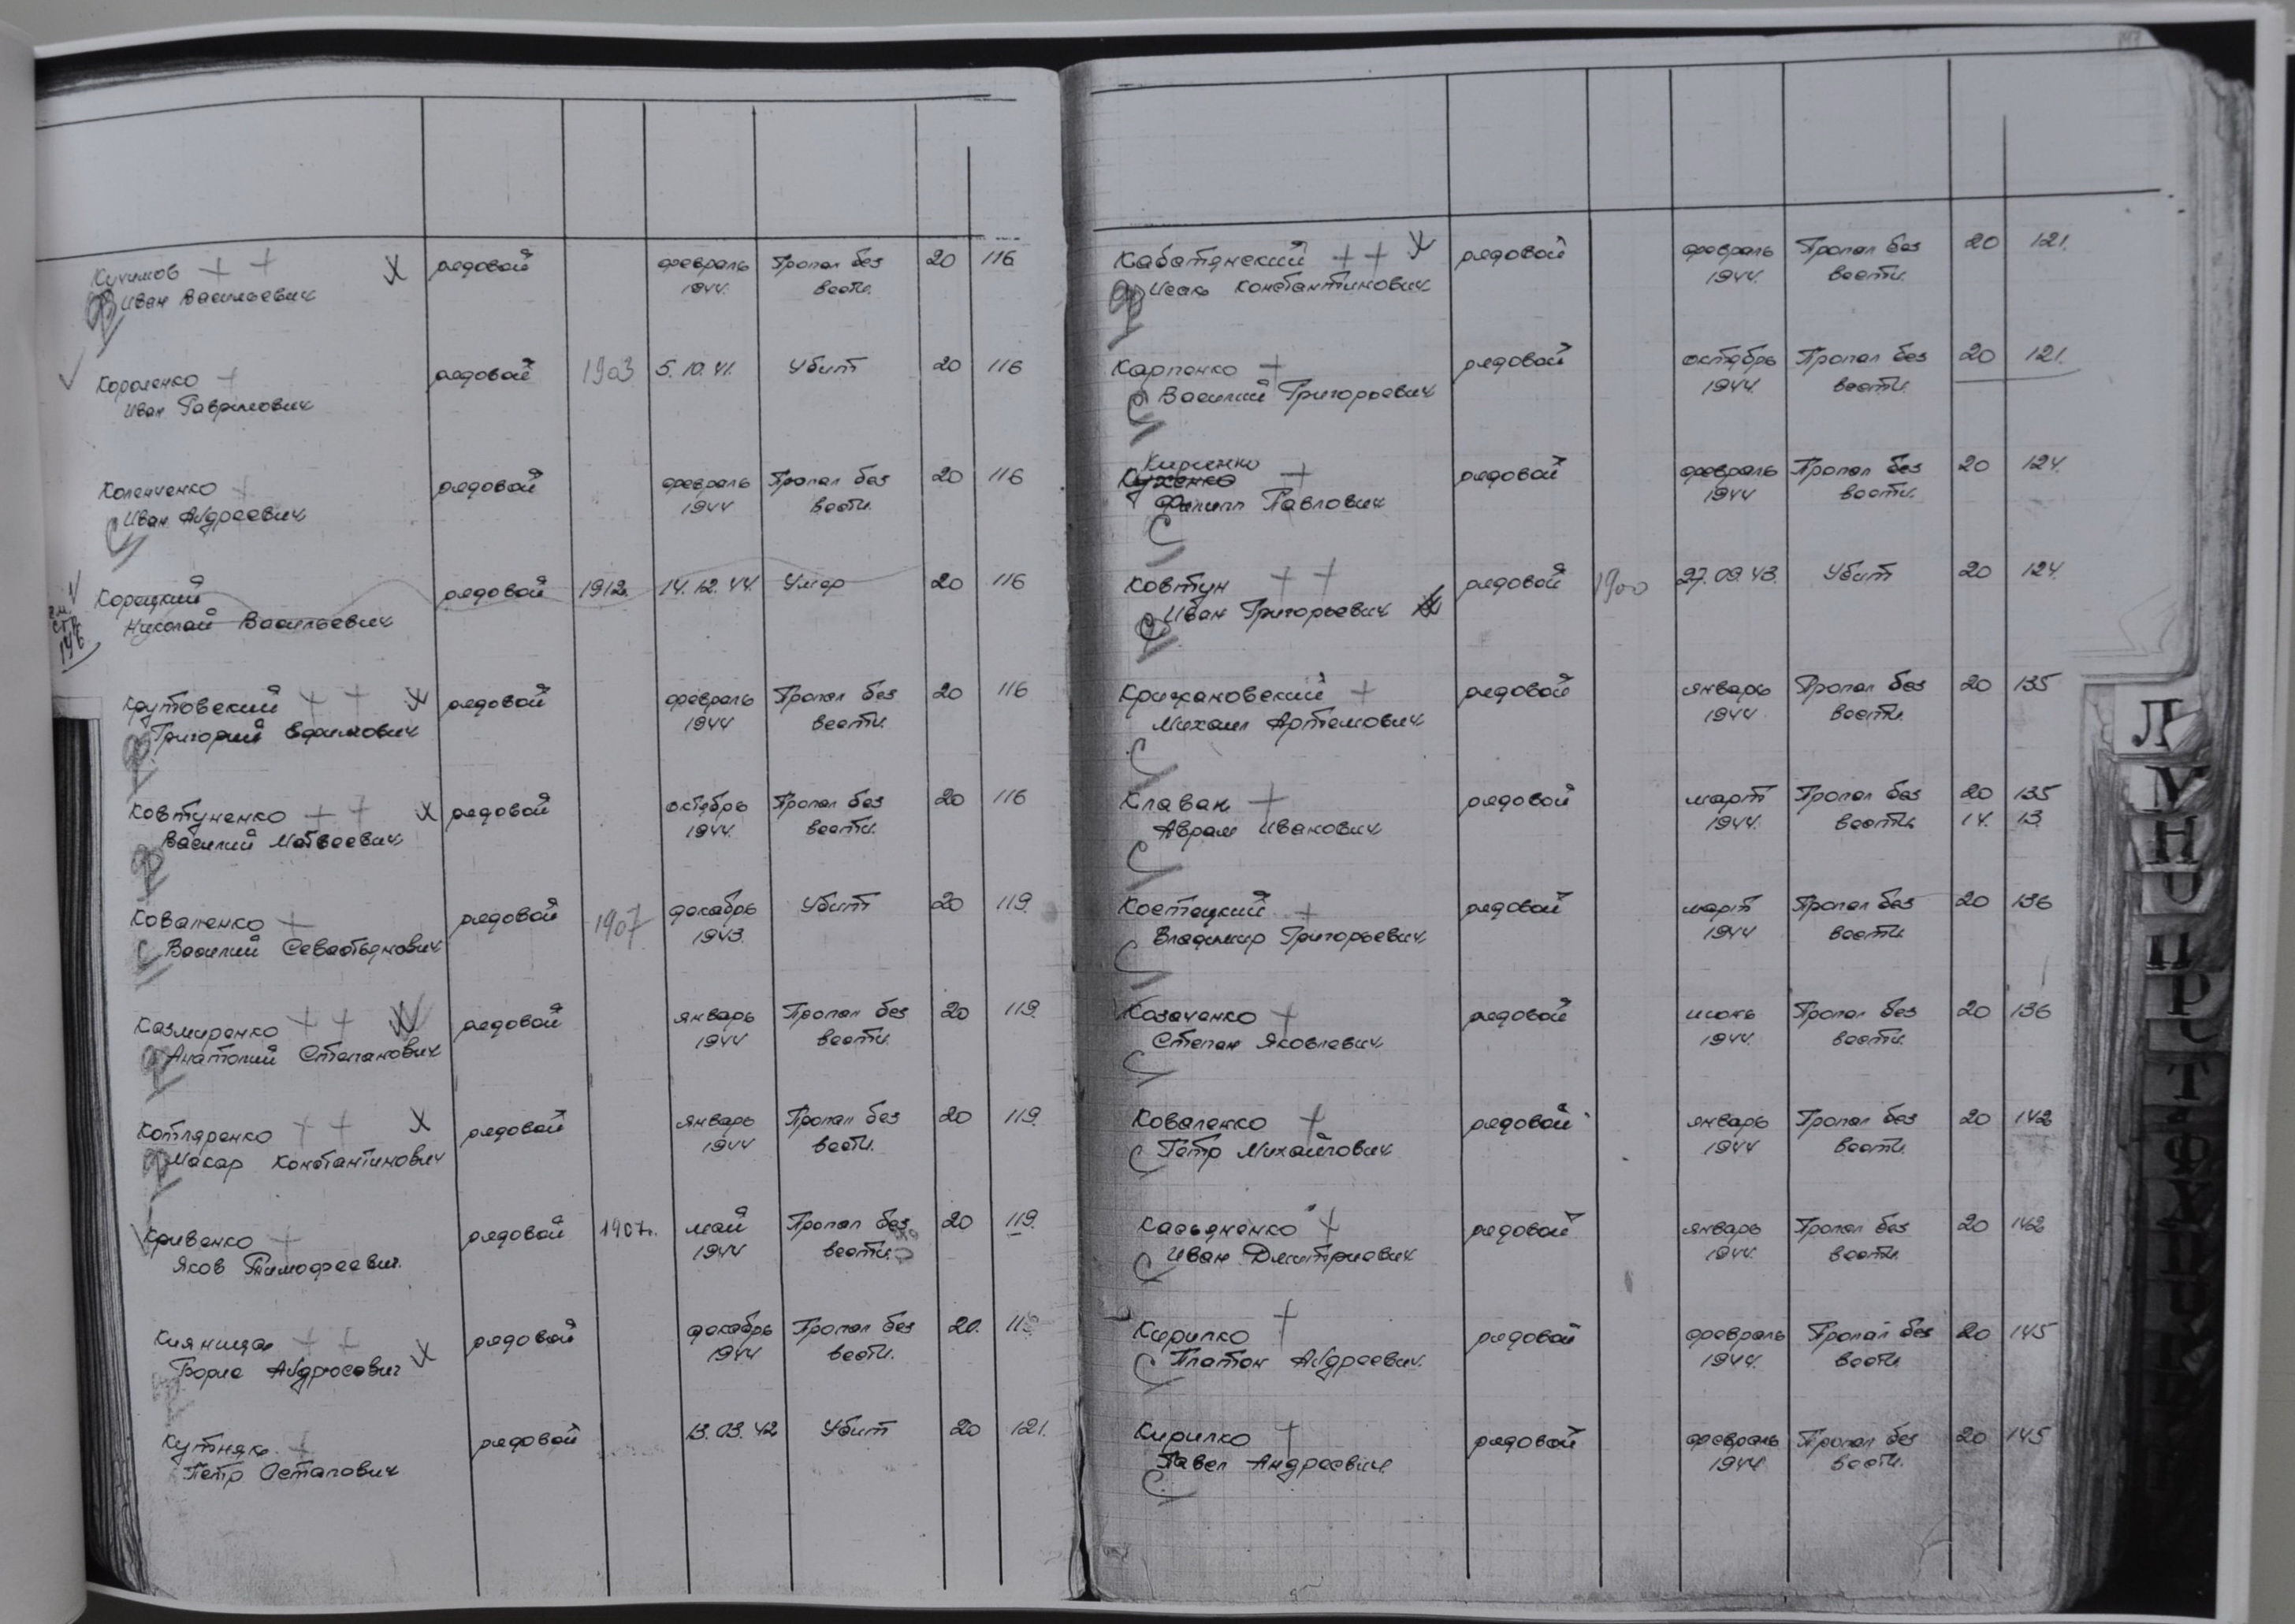 Кучимов ++ Х рядовой февраль Пропал без 20 116
Иван Васильевич 1944. вести.
Короленко + рядовой 1903 5.10.41. Убит 20 116
Иван Гаврилович
Коленченко + рядовой февраль Пропал без 20 116
С Иван Андреевич 1944 вести.
Корецкий рядовой 1912. 14.12.44. Умер 20 116
Николай Васильевич
см.
стр.
146
Крутовский ++ Х рядовой февраль Пропал без 20 116
Григорий Ефимович 1944 вести.
Ковтуненко ++ Х рядовой октябрь Пропал без 20 116
Василий Матвеевич 1944. вести.
Коваленко + рядовой 1907 декабрь Убит 20 119.
С Василий Севастьянович 1943.
Казмиренко ++ Х рядовой январь Пропал без 20 119.
Анатолий Степанович 1944 вести.
Котляренко ++ Х рядовой январь Пропал без 20 119.
Макар Константинович 1944 вести.
Кривенко + рядовой 1907г. май Пропал без 20 119.
Яков Тимофеевич. 1944 вести.
Кияница ++ рядовой декабрь Пропал без 20. 119.
Борис Андросович Х 1944 вести.
Кутняк + рядовой 13.03.42 Убит 20 121.
Петр Остапович
Кабатянский ++ Х рядовой февраль Пропал без 20 121.
Исак Константинович 1944. вести.
Карпенко + рядовой октябрь Пропал без 20 121.
С Василий Григорьевич 1944. вести.
Кириенко
Куженко + рядовой февраль Пропал без 20 124.
Филипп Павлович 1944 вести.
С
Ковтун ++ рядовой 1900 27.09.43. Убит 20 124.
Иван Григорьевич Х
Крижановский + рядовой январь Пропал без 20 135
Михаил Артемович 1944. вести.
С
Клаван + рядовой март Пропал без 20 135
Аврам Иванович 1944. вести. 14. 13.
С
Костецкий + рядовой март Пропал без 20 136
Владимир Григорьевич 1944 вести
С
Козаченко + рядовой июнь Пропал без 20 136
Степан Яковлевич 1944. вести.
С
Коваленко + рядовой январь Пропал без 20 142
С Петр Михайлович 1944 вести.
Касьяненко + рядовой январь Пропал без 20 142
С Иван Дмитриевич 1944. вести.
Кирилко + рядовой февраль Пропал без 20 145
С Платон Андреевич. 1944. вести.
Кирилко + рядовой февраль Пропал без 20 145
Павел Андреевич. 1944 вести.
С
Л
М
Н
О
П
Р
С
Т